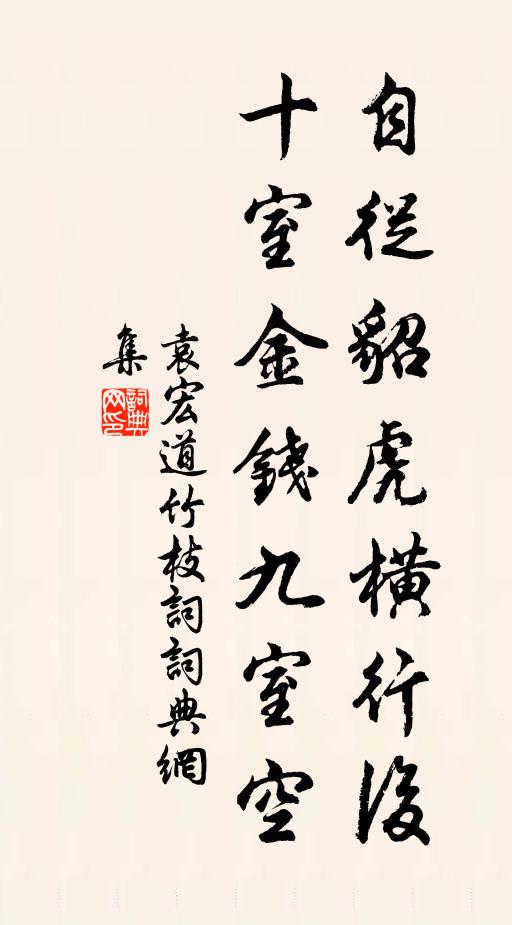 自從貂虎橫行後
十室金錢九室空
袁宏道竹枝詞詞典網
集
詞典
网印